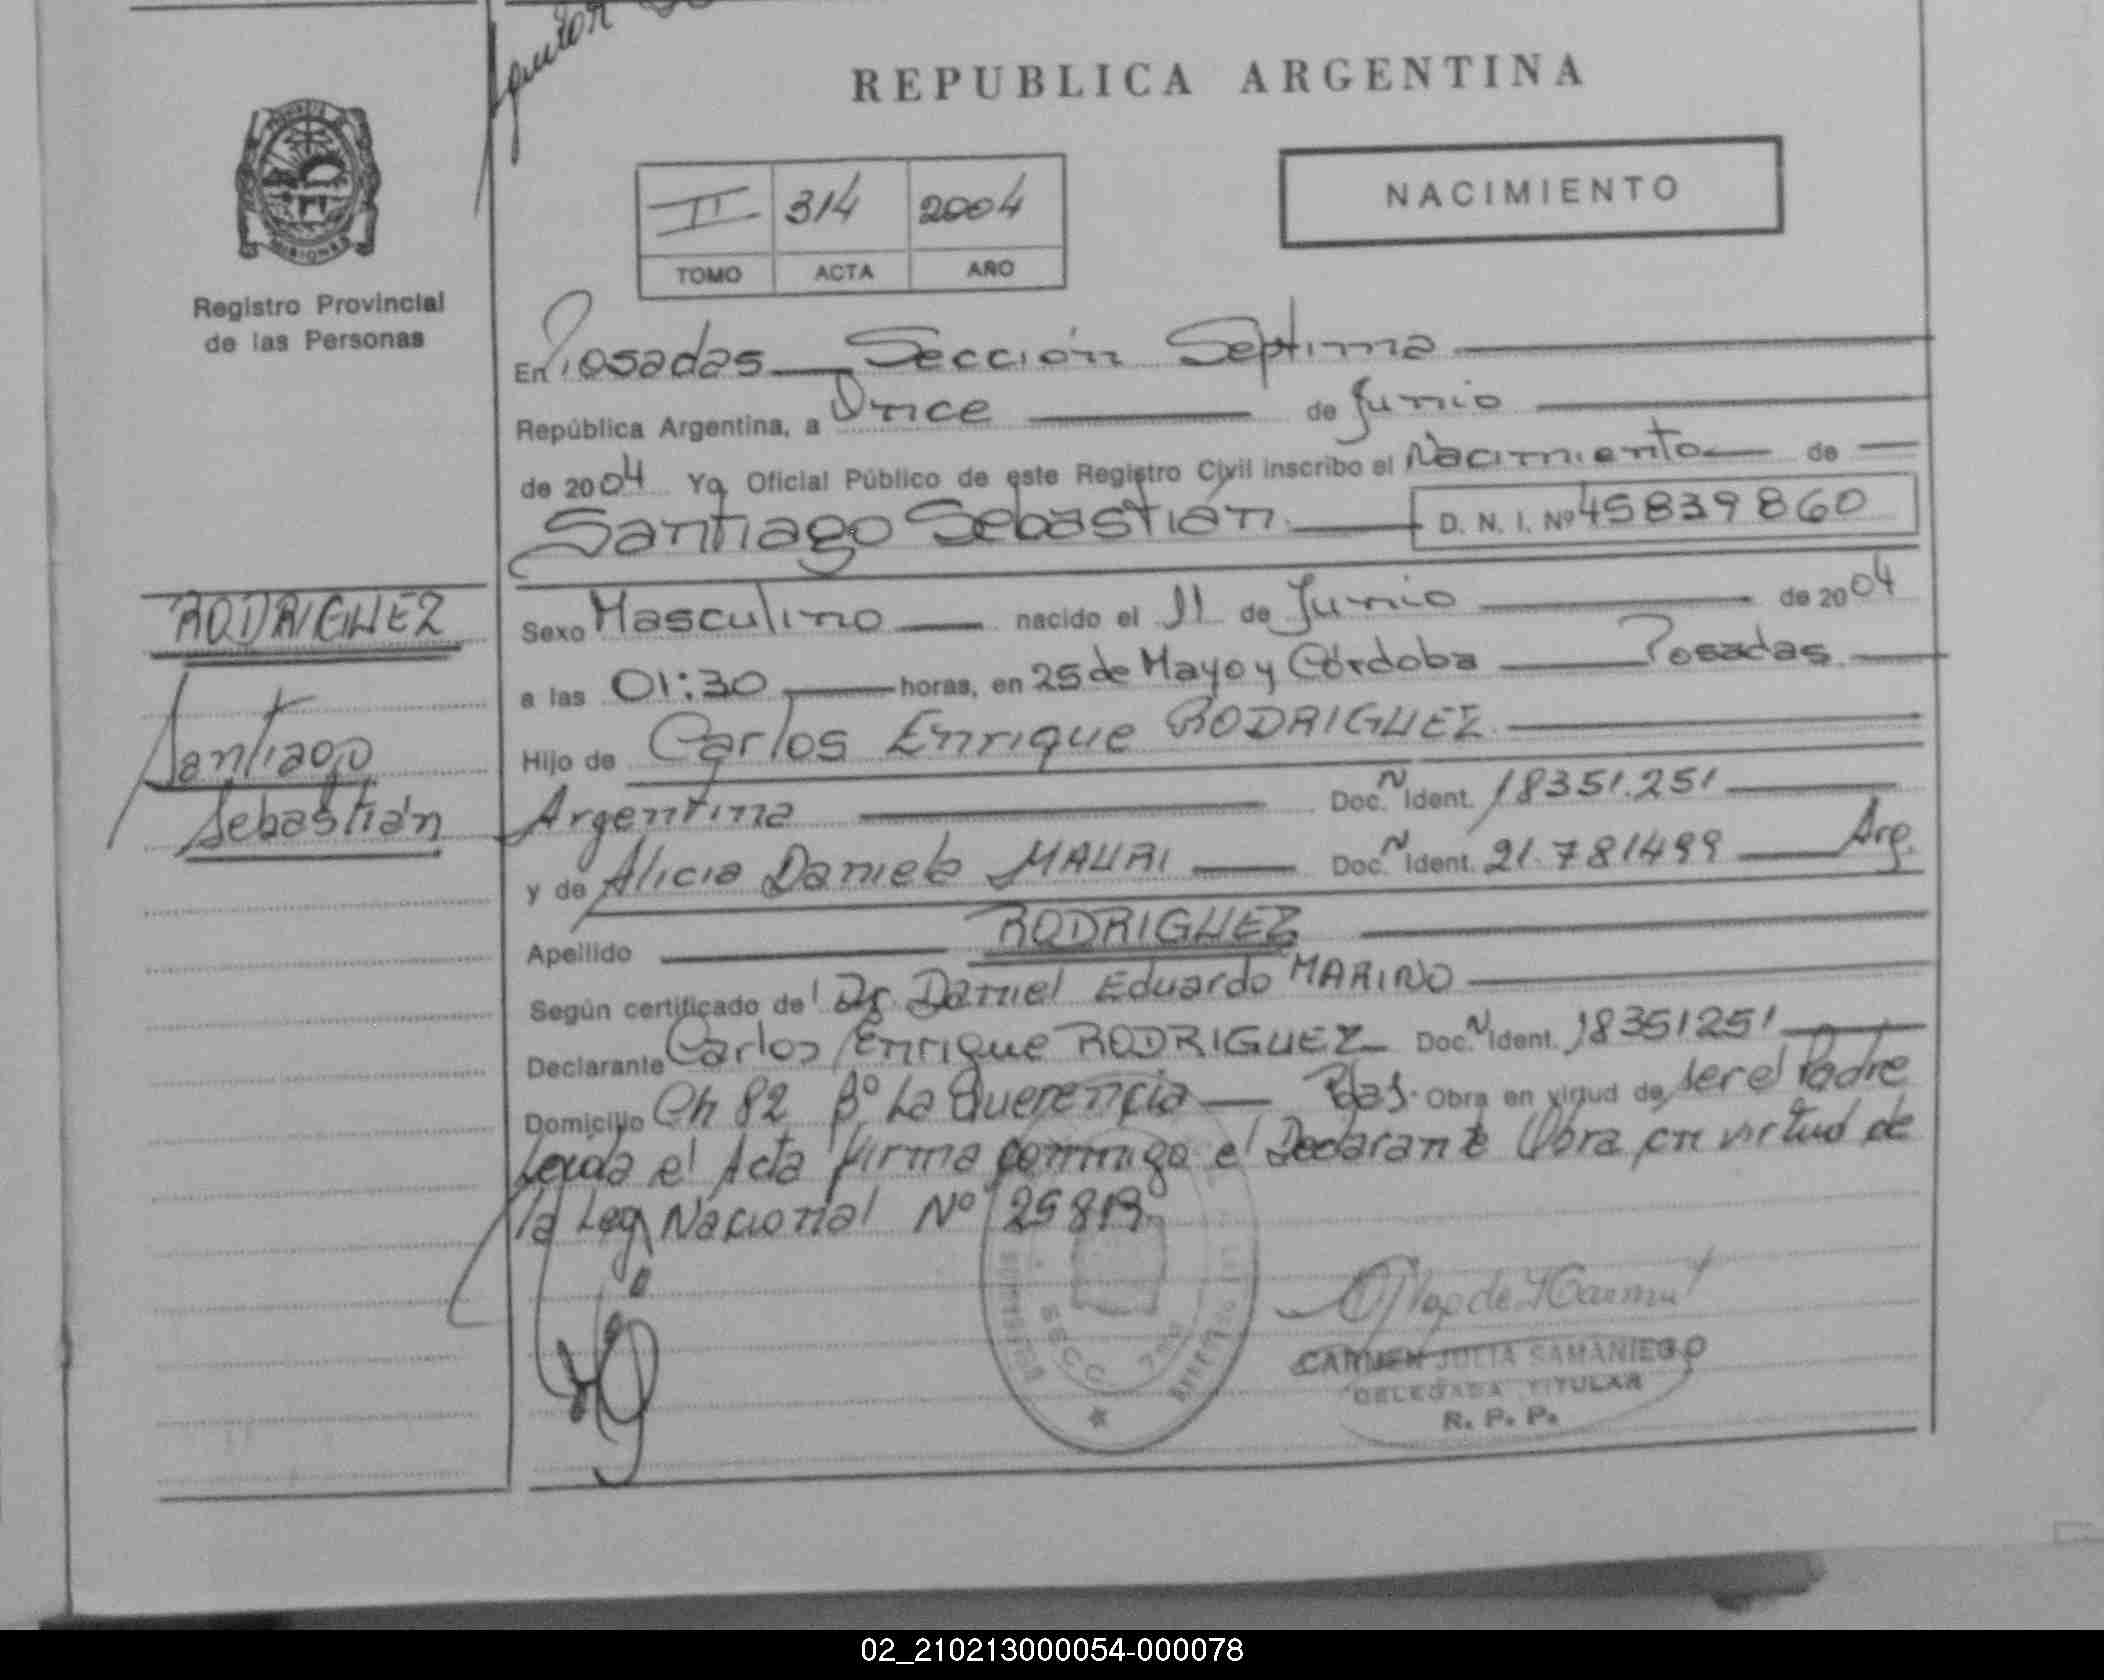 REPUBLICA ARGENTINA
MISIONES
Registro Provincial
de las Personas
II 314 2004
TOMO ACTA AÑO
NACIMIENTO
En Posadas Sección Septima
República Argentina, a Once de Junio
de 2004 Yo, Oficial Público de este Registro Civil inscribo el Nacimiento de
Santiago Sebastián D. N. I. Nº 45839860
RODRIGUEZ
Santiago
Sebastián
Sexo Masculino nacido el 11 de Junio de 2004
a las 01:30 horas, en 25 de Mayo y Córdoba Posadas
Hijo de Carlos Enrique RODRIGUEZ
Argentina Doc. N Ident. 18351.251
y de Alicia Daniela MAURI Doc. N Ident. 21.781499 Arg.
Apellido RODRIGUEZ
Según certificado del Dr. Daniel Eduardo MARINO
Declarante Carlos Enrique RODRIGUEZ Doc. N Ident. 18351251
Domicilio Ch 82 Bº La Querencia Pdas. Obra en virtud de ser el Padre
Leida el Acta firma conmigo el Declarante Obra en virtud de
la Ley Nacional Nº 25819
SECC.
CARMEN JULIA SAMANIEGO
DELEGADA TITULAR
R. P. P.
02_210213000054-000078